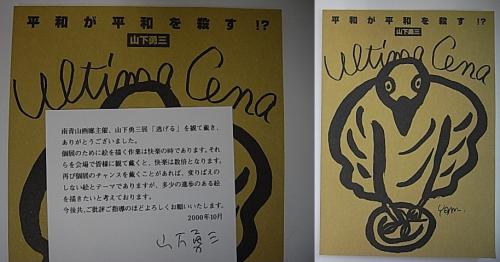 平和が平和を殺す!?
山下勇三
Ultima Cena
南青山画廊主催、山下勇三展「逃げる」を観て戴き、
ありがとうございました。
個展のために絵を描く作業は快楽の時であります。それ
らを会場で皆様に観て戴くと、快楽は数倍となります。
再び個展のチャンスを戴くことがあれば、変りばえの
しない絵とテーマでありますが、多少の進歩のある絵
を描きたいと考えております。
今後共、ご批評ご指導のほどよろしくお願いいたします。
2000年10月
山下勇三
平和が平和を殺す!?
山下勇三
Ultima Cena